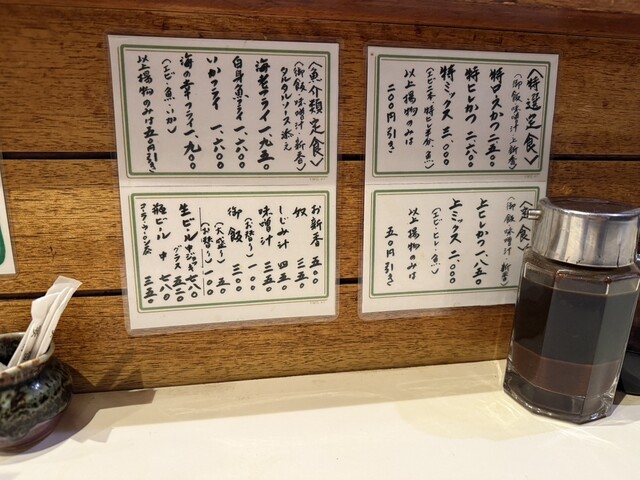 〈特選定食〉
(御飯・味噌汁・上新香)
特ロースかつ 二、五〇〇
特ヒレかつ 二、六〇〇
特ミックス 三、〇〇〇
以上揚物のみは
二〇〇円引き
(御飯 味噌汁・新香)
上ヒレかつ 一、八五〇
上ミックス 二、〇〇〇
(エビ・ヒレ・魚)
以上揚物のみは
五〇円引き
〈魚介類定食〉
(御飯・味噌汁・新香)
タルタルソース添え
海老フライ 一、九五〇
白身魚フライ 一、六〇〇
いかフライ 一、六〇〇
海の幸フライ 一、九〇〇
(エビ・魚・いか)
以上揚物のみは五〇円引き
お新香 五〇〇
奴 三五〇
しじみ汁 四五〇
味噌汁 三五〇
(お替り) 一〇〇
御飯 三〇〇
(大盛り) 五〇
(お替り) 一〇〇
生ビール 中ジョッキ 七八〇
グラス 五二〇
瓶ビール 中 七八〇
コーラ・ウーロン茶 三五〇